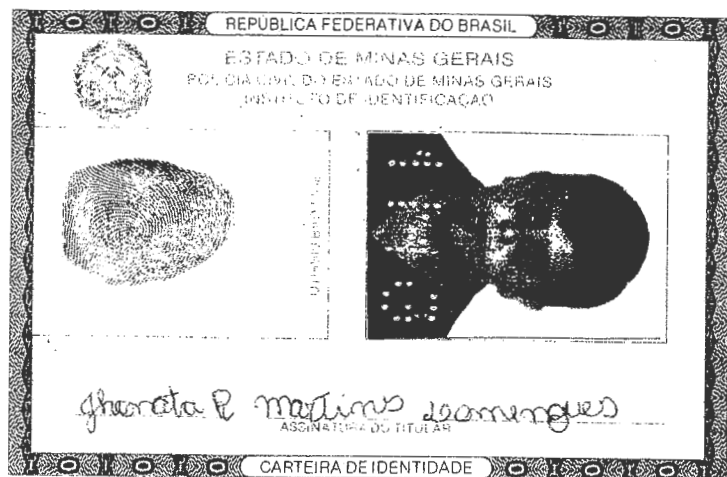 REPÚBLICA FEDERATIVA DO BRASIL
ESTADO DE MINAS GERAIS
POLÍCIA CIVIL DO ESTADO DE MINAS GERAIS
INSTITUTO DE IDENTIFICAÇÃO
Jhonata P Martins
ASSINATURA DO TITULAR
CARTEIRA DE IDENTIDADE